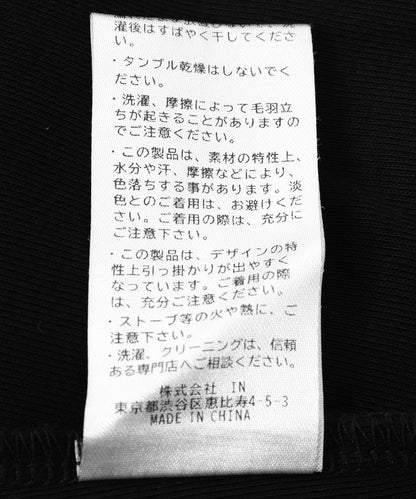 濯後はすばやく干してくださ
い。
・タンブル乾燥はしないでく
ださい。
・洗濯、摩擦によって毛羽立
ちが起きることがありますの
でご注意ください。
・この製品は、素材の特性上、
水分や汗、摩擦などにより、
色落ちする事があります。淡
色とのご着用は、お避けくださ
い。ご着用の際は、充分に
ご注意下さい。
・この製品は、デザインの特
性上引っ掛かりが出やすく
なっています。ご着用の際
は、充分ご注意ください。
・ストーブ等の火や熱に、ご
注意下さい。
・洗濯、クリーニングは、信頼
ある専門店へご相談ください。
株式会社 IN
東京都渋谷区恵比寿4-5-3
MADE IN CHINA